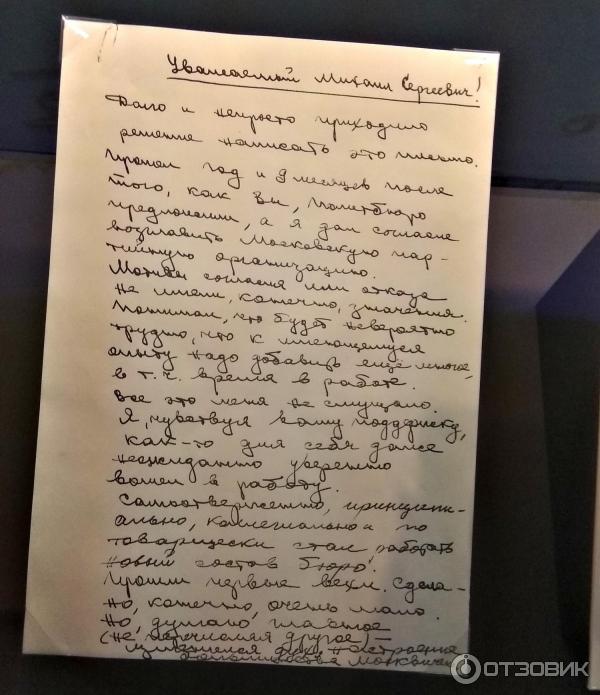 Уважаемый Михаил Сергеевич!
Долго и непросто приходило
решение написать это письмо.
Прошел год и 9 месяцев после
того, как вы, Политбюро
предложили, а я дал согласие
возглавить Московскую пар-
тийную организацию.
Мотивы согласия или отказа
не имели, конечно, значения.
Понимал, что будет невероятно
трудно, что к имеющемуся
опыту надо добавить ещё многое,
в т.ч. время в работе.
Все это меня не смущало.
Я, чувствуя Вашу поддержку,
как-то для себя даже
неожиданно уверенно
вошел в работу.
Самоотверженно, принципи-
ально, коллегиально и по
товарищески стал работать
новый состав бюро.
Прошли первые вехи. Сдела-
но, конечно, очень мало.
Но, думаю главное
(не перечисляя другое) –
изменился дух, настроение
большинства москвичей
ОТЗОВИК